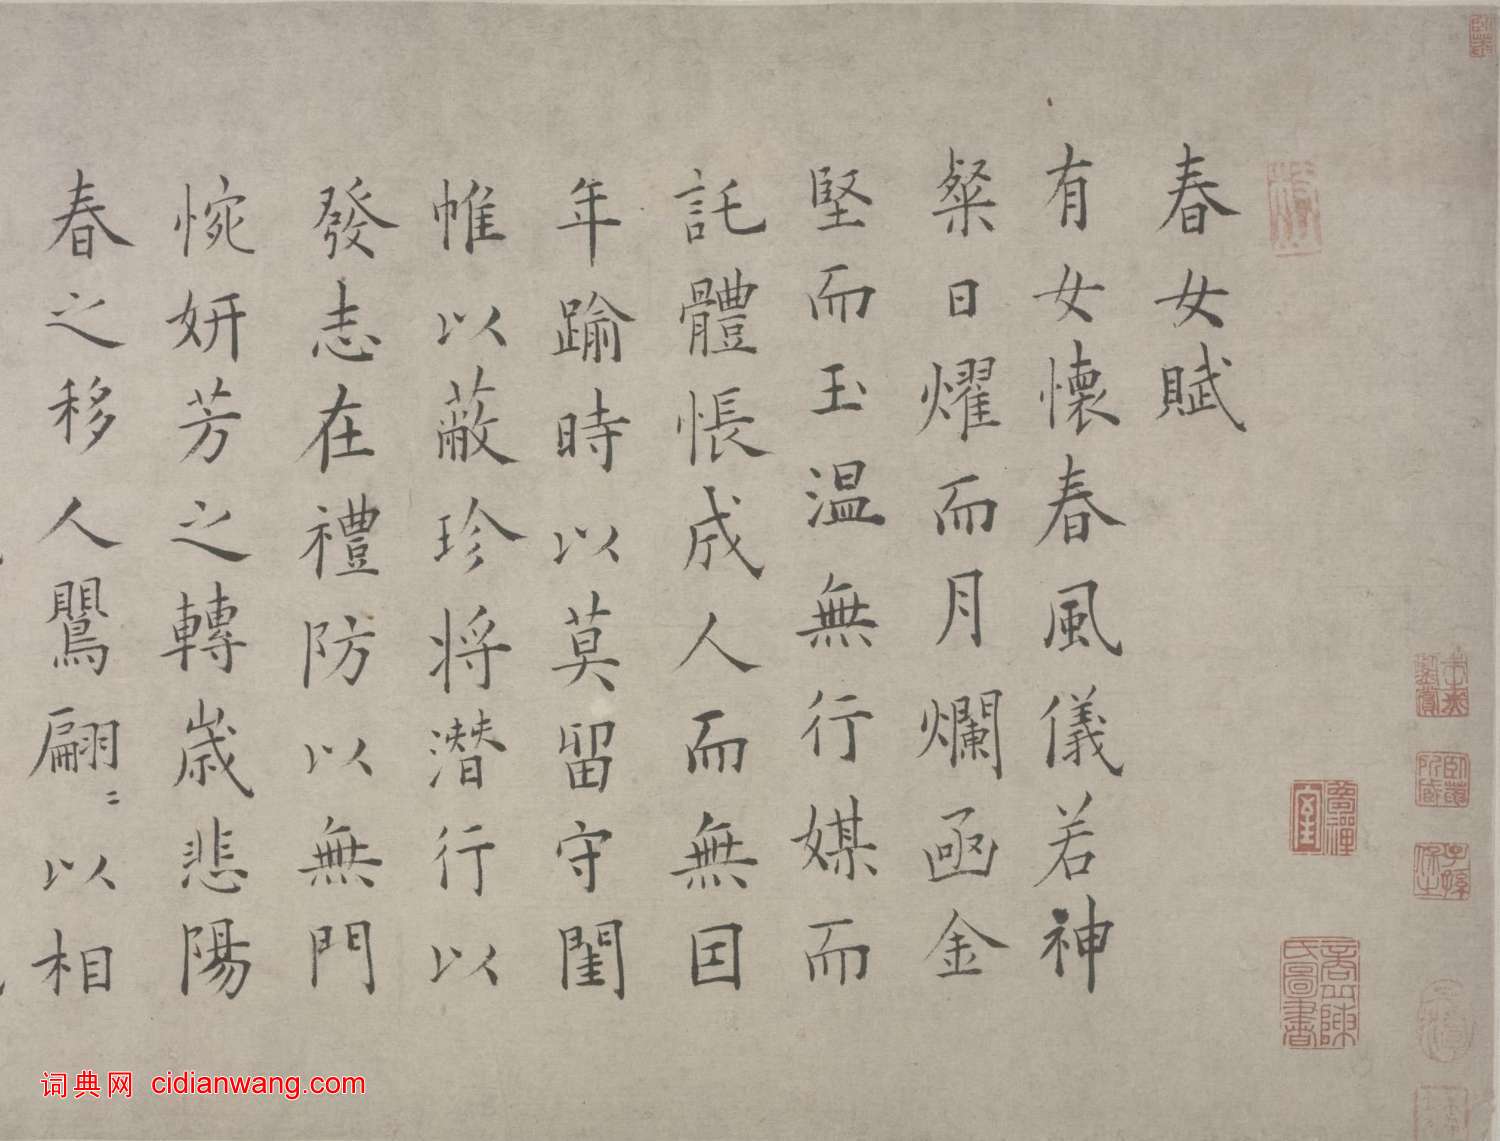 春女賦
有女懷春風儀若神
粲日燿而月爛函金
堅而玉溫無行媒而
託體悵成人而無因
年踰時以莫留守閨
帷以蔽珍將潛行以
發志在禮防以無門
惋妍芳之轉歲悲陽
春之移人鸎翩〻以相
词典网 cidianwang.com